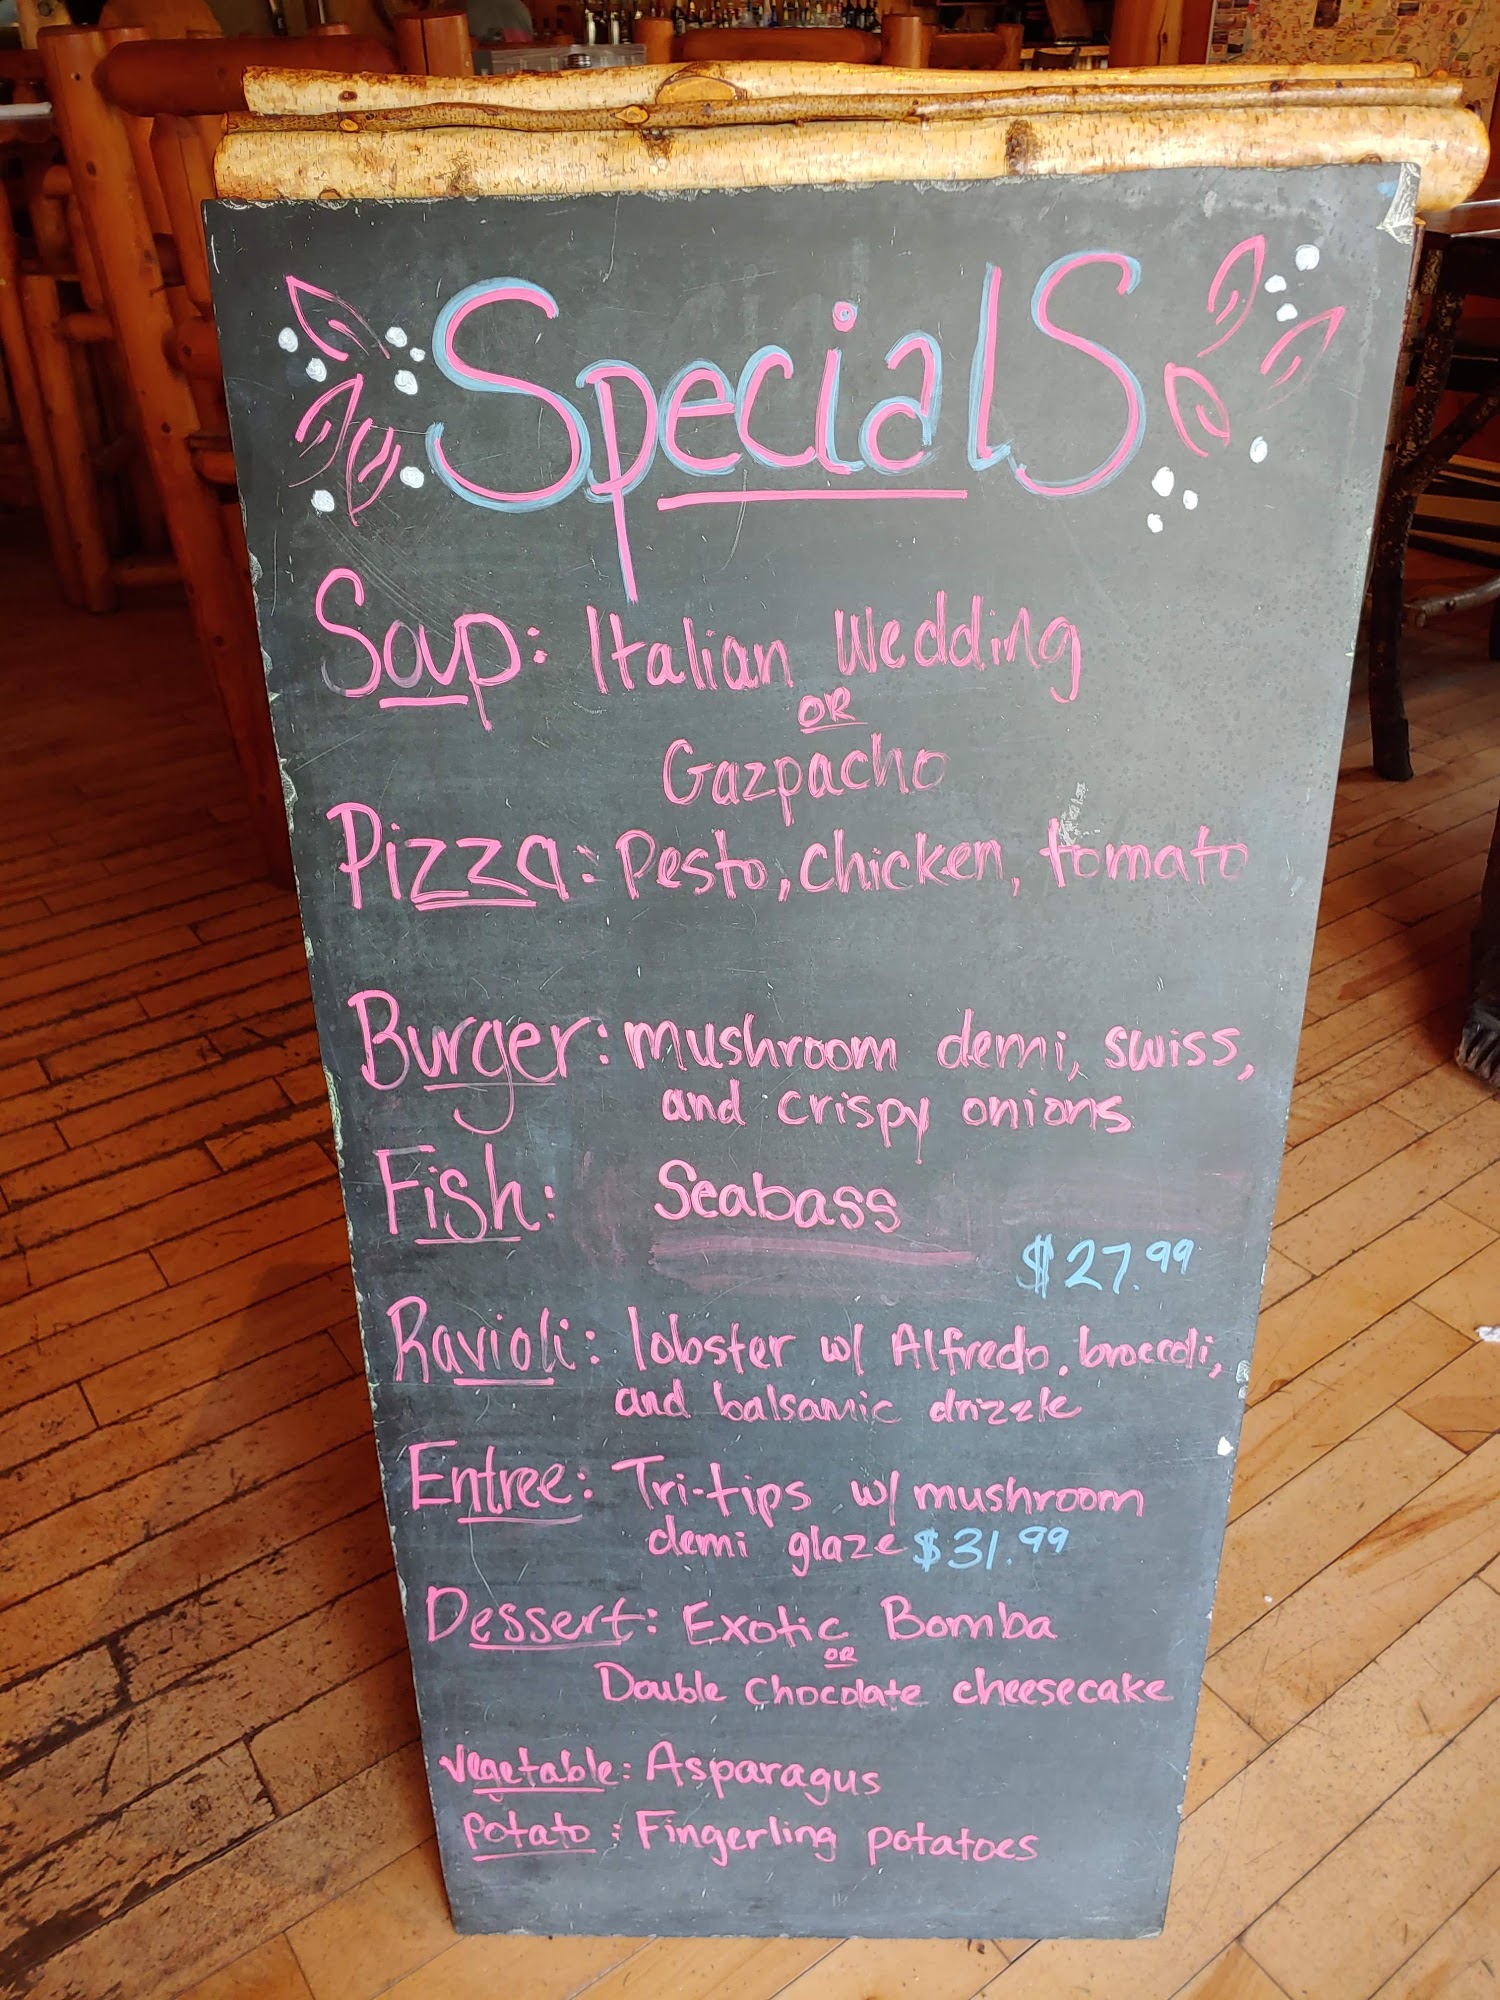 Specials
Soup: Italian Wedding
OR
Gazpacho
Pizza: Pesto, chicken, tomato
Burger: mushroom demi, swiss,
and crispy onions
Fish: Seabass
$27.99
Ravioli: lobster w/ Alfredo, broccoli,
and balsamic drizzle
Entree: Tri-tips w/ mushroom
demi glaze $31.99
Dessert: Exotic Bomba
OR
Double Chocolate cheesecake
Vegetable: Asparagus
Potato: Fingerling potatoes